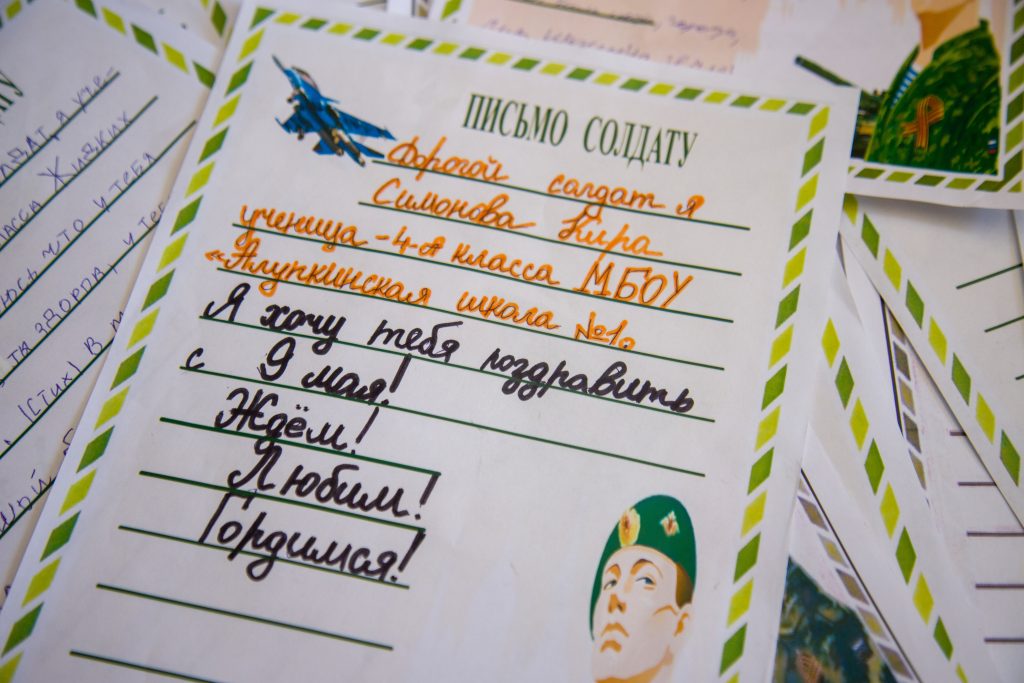 ПИСЬМО СОЛДАТУ
Дорогой солдат я
Симонова Кира
ученица - 4-А класса МБОУ
«Алупкинская школа №1».
Я хочу тебя поздравить
с 9 мая!
Ждём!
Любим!
Гордимся!
класса Жидких
что у тебя
ты здоров, у те
(стих) в